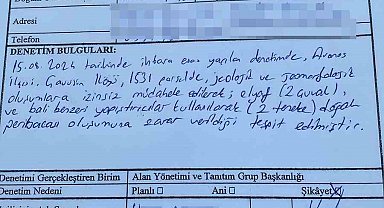 Adresi
Telefon
DENETİM BULGULARI:
15.08.2024 tarihinde ihbara esas yapılan denetimde, Avanos
ilçesi, Çavuşin Köyü, 1531 parselde, jeolojik ve jeomorfolojik
oluşumlara izinsiz müdahale edilerek; elyaf (2 çuval),
ve bali benzeri yapıştırıcılar kullanılarak (2 teneke) doğal
peribacası oluşumuna zarar verildiği tespit edilmiştir.
Denetimi Gerçekleştiren Birim Alan Yönetimi ve Tanıtım Grup Başkanlığı
Denetim Nedeni Planlı □ Ani □ Şikâyet ☒